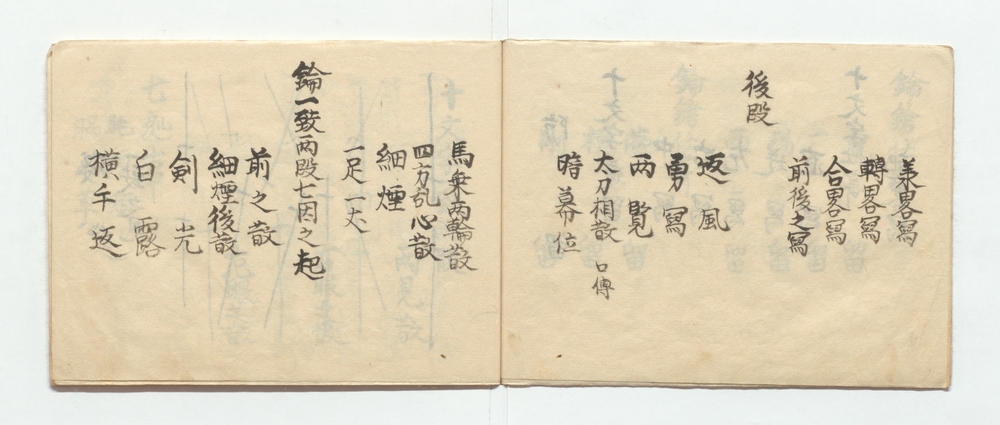 美畧寫
轉畧寫
合畧寫
前後之寫
後段
返風
勇寫
両覧
太刀相散 口傳
時幕位
馬乗両輪散
四方乱心散
細煙
一足一丈
鑰一致両段七因之起
前之散
細煙後散
剣光
白露
横手返